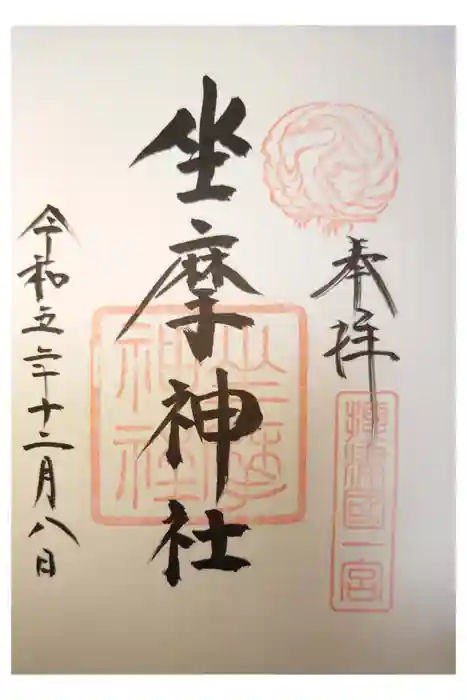 奉拝
摂津国一宮
坐摩神社
坐摩神社
令和五年十二月八日